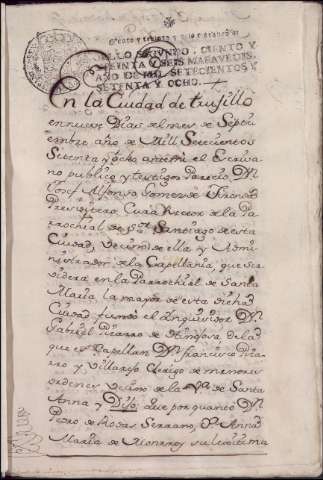 Ciento y treinta y seis maravedis
SELLO SEGVNDO, CIENTO Y
TREINTA Y SEIS MARAVEDIS,
AÑO DE MIL SETECIENTOS Y
SETENTA Y OCHO.
En la Ciudad de trujillo
en nueve Dias del mes de Septi
embre año de Mill Setecientos
Setenta y ocho ante mi el Escriva
no publico y testigos Parecio, Dn
Josef Alfonso Gomez de
Presvitero, Cura Rector de la Pa
rrochial de Sto. Santiago de esta
Ciudad, Vecino de ella y Admi
nistrador de la Capellania, que se
en la Parrochial de Santa
Maria la mayor de esta dicha
Ciudad, fundó el Inquisidor Dn
Gabriel Pizarro de Hinojosa, de la
que es Capellan Dn francisco Piza
rro y Villarejo Clerigo de menores
ordenes Vecino de la Va. de Santa
Anna y Dijo: Que por quanto Dn
Pedro de Rodas Serrano, Da. Anna
Maria de Monrroy su lexitima